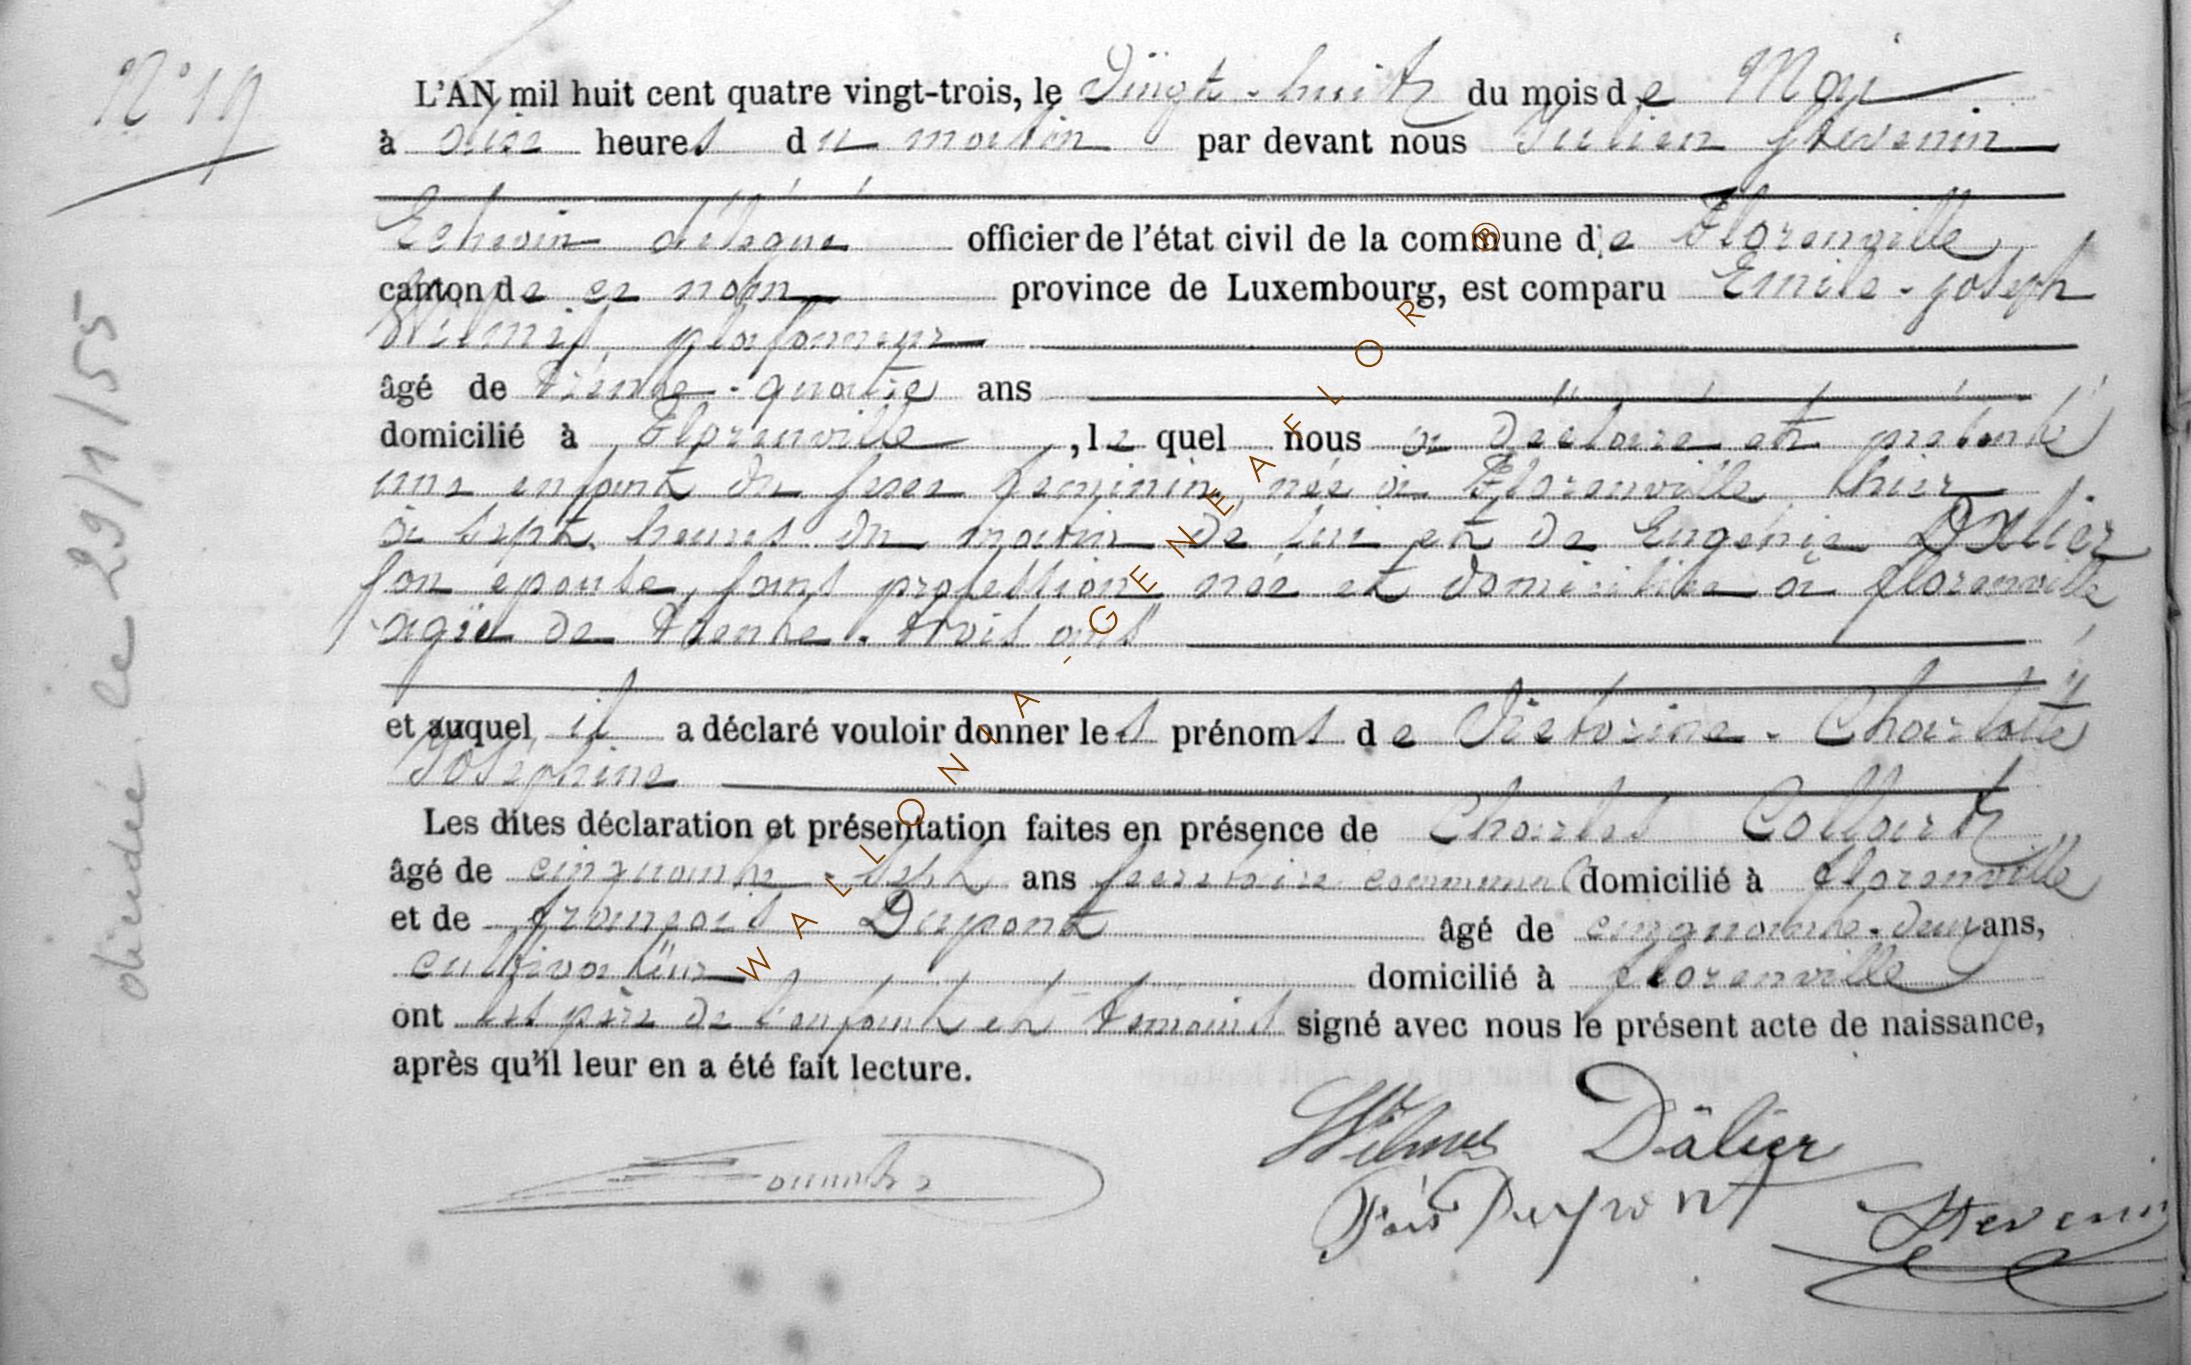 N° 19
L'AN mil huit cent quatre vingt-trois, le Vingt-huit du mois de Mai
à dix heures du matin par devant nous Julien Stevenin
Echevin délégué officier de l'état civil de la commune de Florenville
canton de ce nom province de Luxembourg, est comparu Emile-Joseph
Wilmes, plafonneur
âgé de trente-quatre ans
domicilié à Florenville, lequel nous a déclaré et présenté
une enfant du sexe féminin, née à Florenville hier
à sept heures du matin de lui et de Eugénie Dalier
son épouse, sans profession née et domiciliée à florenville
agée de trente-trois ans
et auquel il a déclaré vouloir donner les prénoms de Victorine-Charlotte
Joséphine
Les dites déclaration et présentation faites en présence de Charles Collart
âgé de cinquante-sept ans secrétaire communal domicilié à florenville
et de françois Dupont âgé de cinquante-deux ans,
cultivateur domicilié à florenville
ont les père de l'enfant et témoins signé avec nous le présent acte de naissance,
après qu'il leur en a été fait lecture.
Wilmes Dalier
Fçois Dupont Stevenin
décédée le 29/1/55
WALLONIA-GENEAFLOR ®